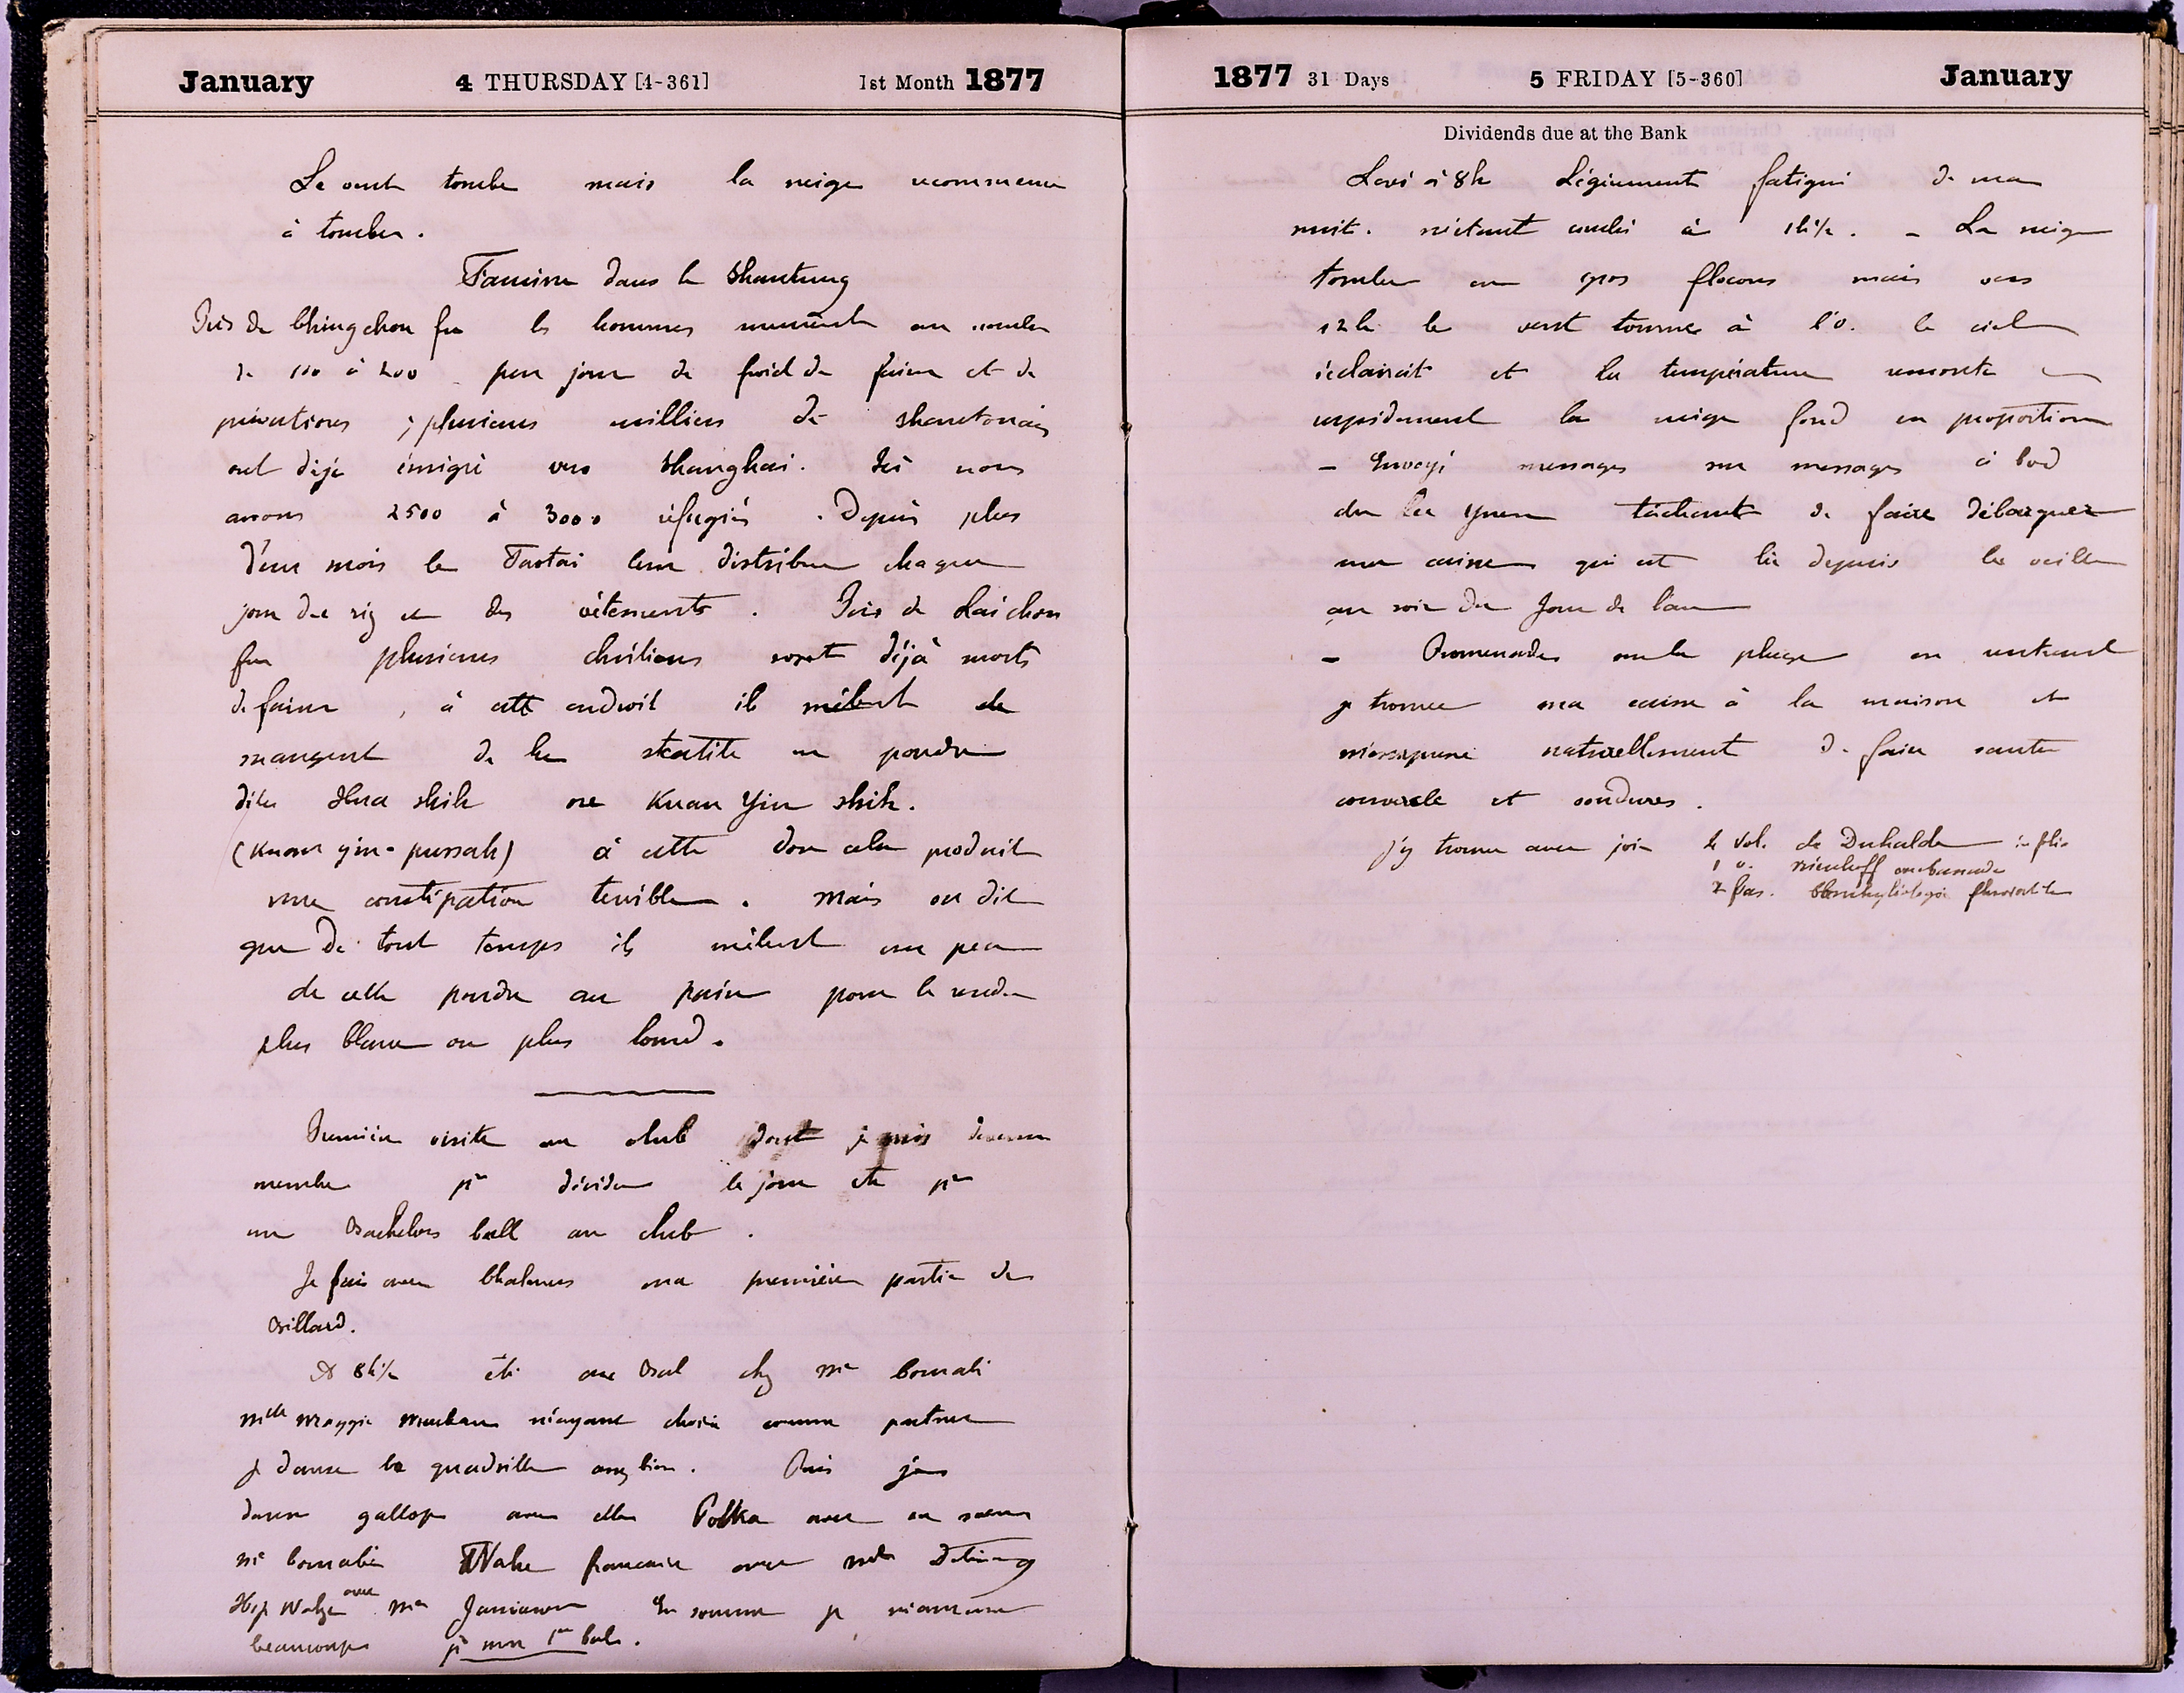 January 4 THURSDAY [4-361] 1st Month 1877
Le vent tombe mais la neige recommence
à tomber.
Famine dans le Shantung
Près de Chingchou fu les hommes meurent au nombre
de 100 à 200 par jour de froid de faim et de
privations ; plusieurs milliers de shantonais
ont déjà émigré vers Shanghai. Ici nous
avons 2500 à 3000 réfugiés. Depuis plus
d'un mois le Taotai leur distribue chaque
jour du riz et des vêtements. Près de Laichou
fu plusieurs chrétiens sont déjà morts
de faim, à cet endroit ils mêlent de
mangent de la stéatite en poudre
dite Hua shih ou Kuan Yin shih.
(Kuan yin-pussah) à cette dose cela produit
une constipation terrible. Mais on dit
que de tout temps ils mêlent un peu
de cette poudre au pain pour le rendre
plus blanc ou plus lourd.
Première visite au club dont je suis devenu
membre pr décider le jour etc pr
un Bachelors ball au club.
Je fais avec Chalmers ma première partie de
Billard.
A 8h½ été au Bal chez Me
Mlle Maggie m'ayant choisi comme partner
je danse le quadrille Puis je
danse gallop avec elle Polka avec sa soeur
Me Walse française avec Detring
Hop Walze avec Me Jamieson En somme je m'amuse
beaucoup pr mon 1er bal.
1877 31 Days 5 FRIDAY [5-360] January
Dividends due at the Bank
Levé à 8h Légèrement fatigué de ma
nuit. m'étant couché à 1h½. - La neige
tombe en gros flocons mais vers
12h le vent tourne à l'O. le ciel
s'éclaircit et la température remonte
rapidement la neige fond en proportion
- Envoyé messages sur messages à bord
du tâchant de faire débarquer
ma caisse qui est là depuis la veille
au soir du Jour de l'an
- Promenade sur la plage en rentrant
je trouve ma caisse à la maison et
m'empresse naturellement de faire sauter
couvercle et soudures.
j'y trouve avec joie 4 Vol. de Duhalde in folio
1 v. Nieuhoff ambassade
2 fas. Conchyliologie fluviatile